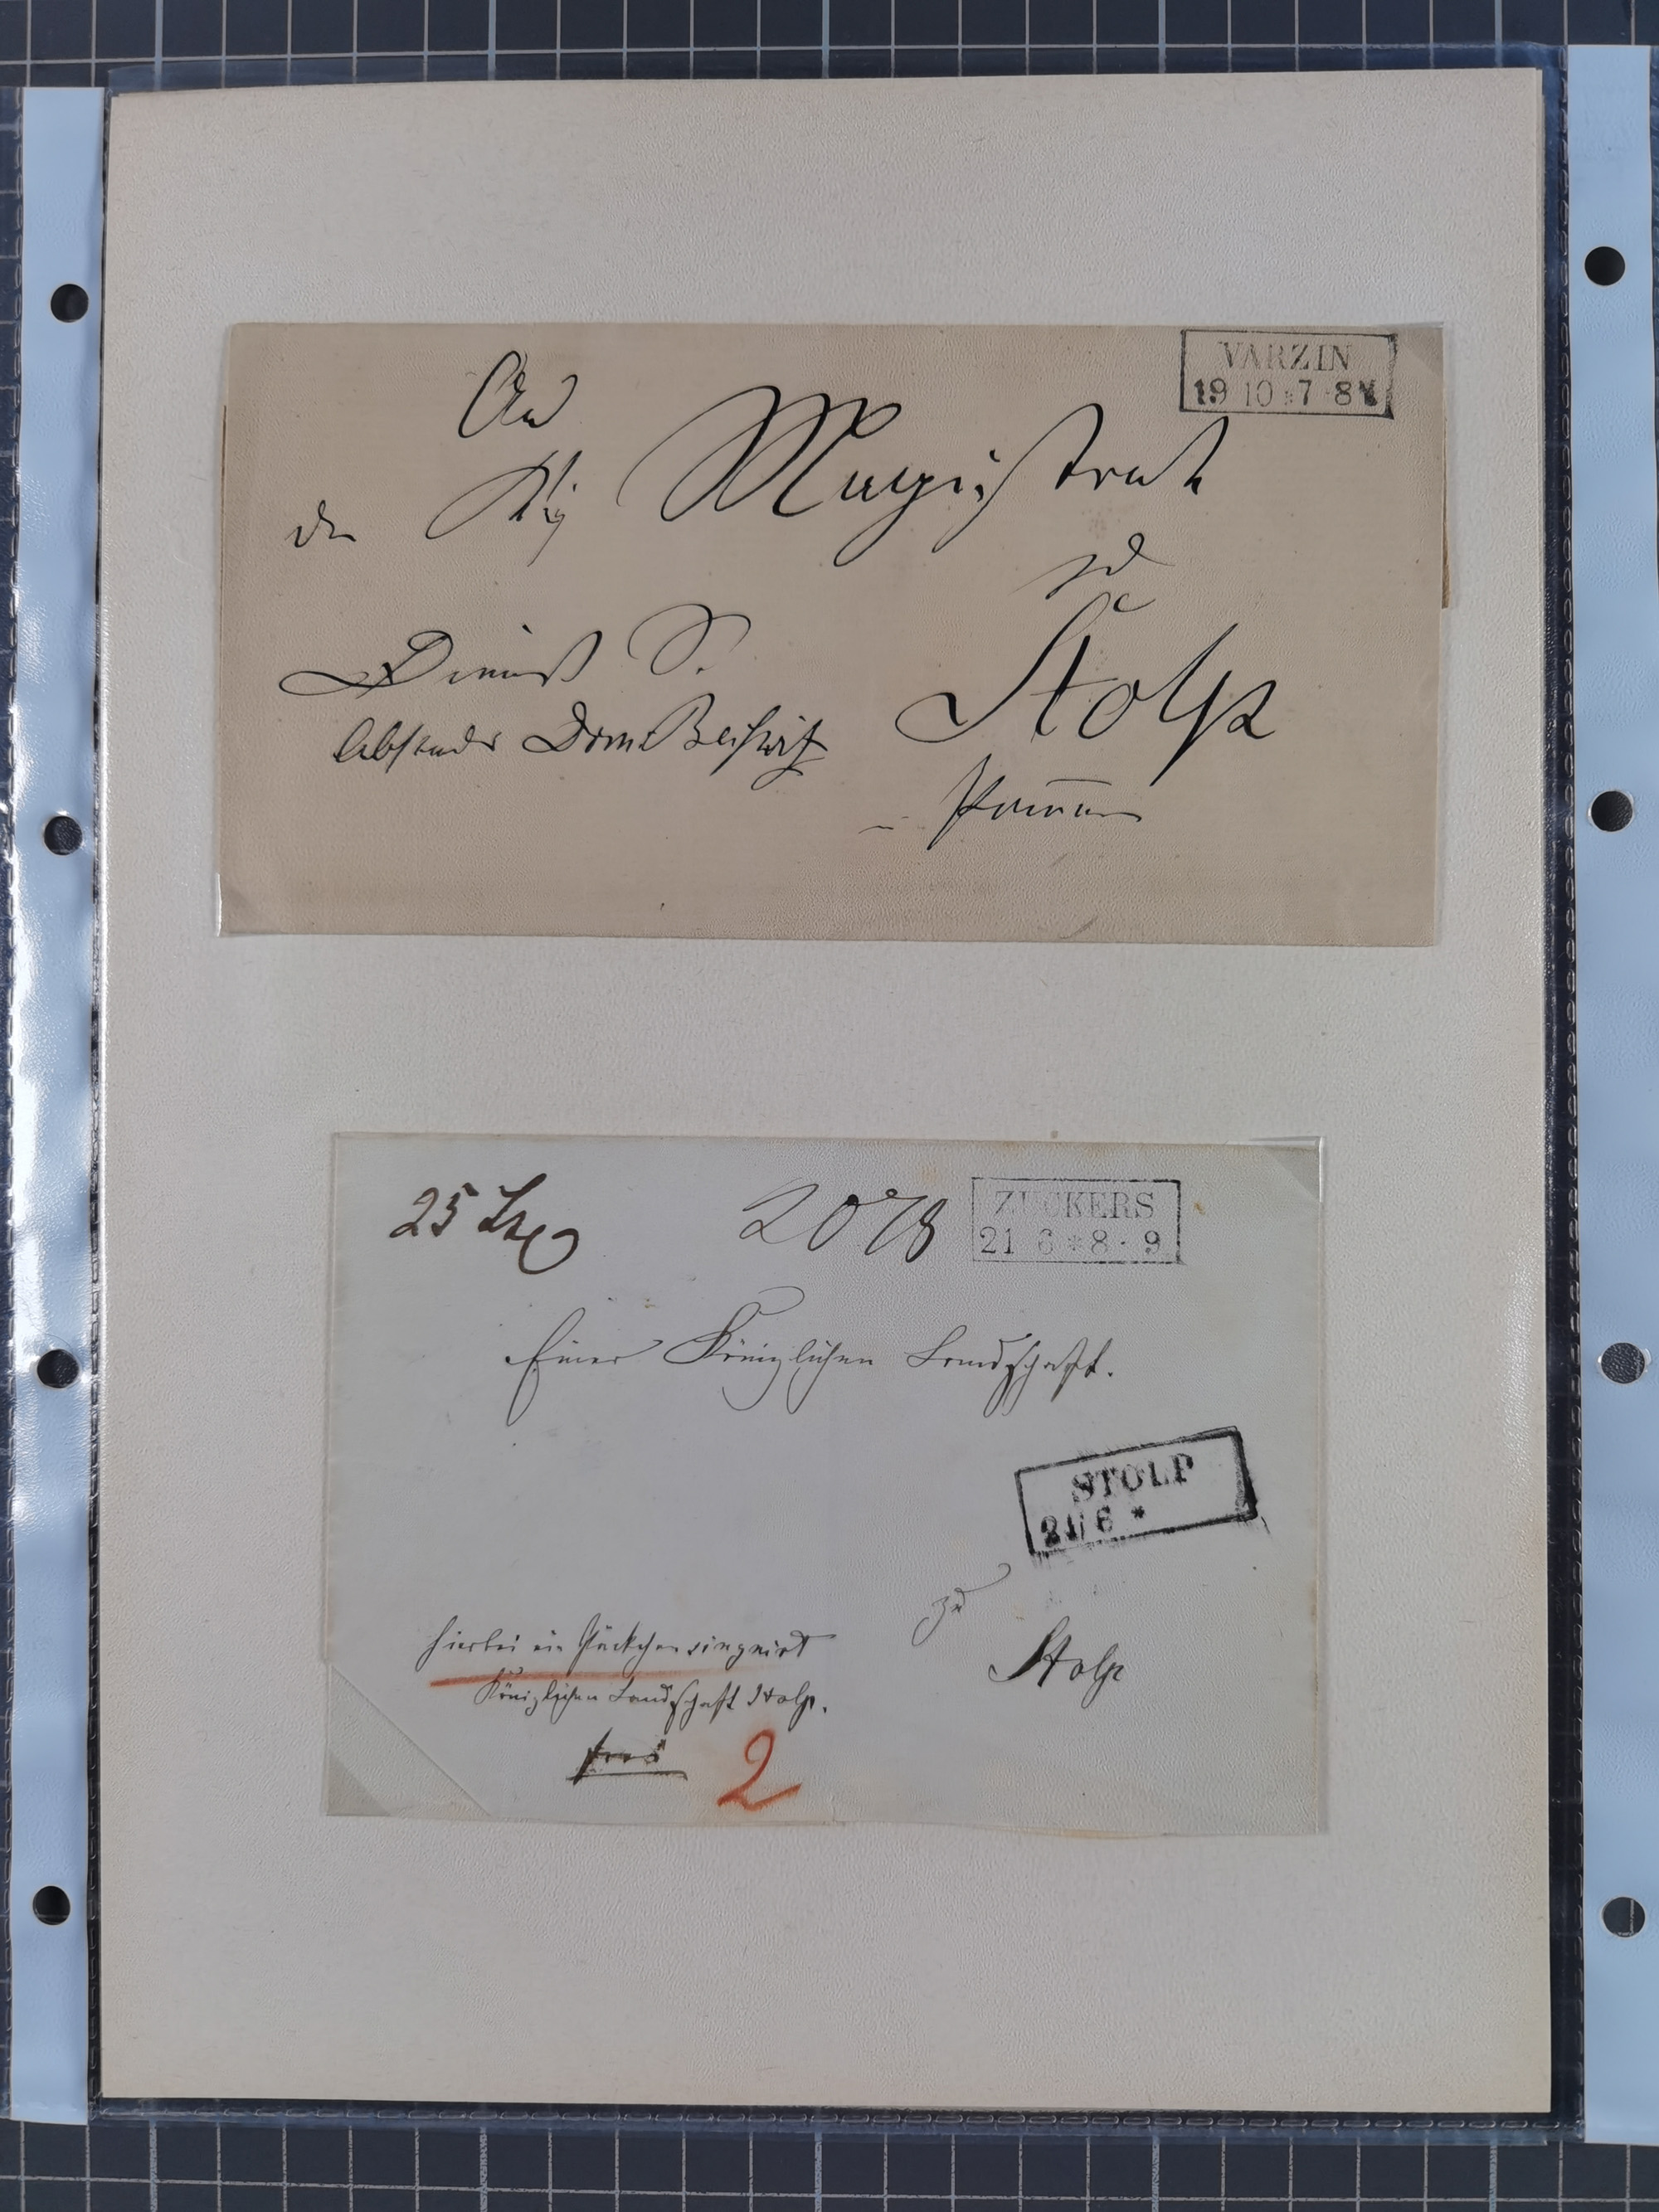 VARZIN
19 10 * 7-8 V
An
den Kgl Magistrat
zu
Stolp
Pommern
Dienst S.
Absender Dom
25 
2078
ZUCKERS
21 6 * 8 - 9
Einer Königlichen Landschaft.
STOLP
21 6 *
zu
Stolp
hierbei ein Päckchen singnirt
Königlichen Landschaft Stolp.
frco
2